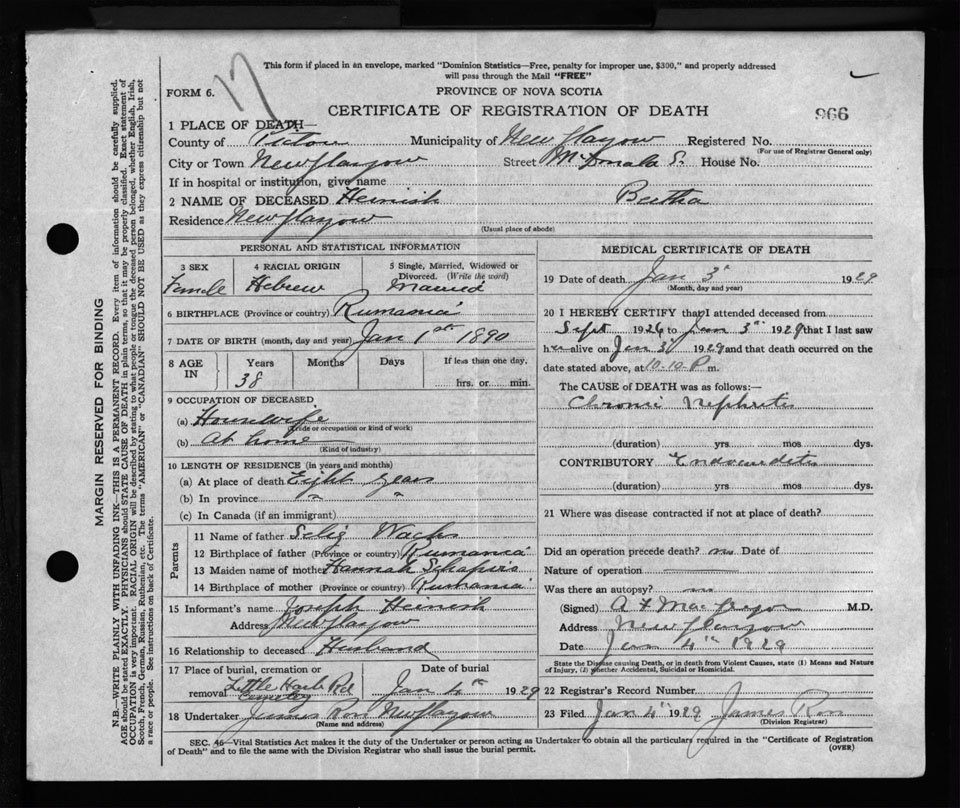 17
This form if placed in an envelope, marked "Dominion Statistics—Free, penalty for improper use, $300," and properly addressed
will pass through the Mail "FREE"
FORM 6.
PROVINCE OF NOVA SCOTIA
CERTIFICATE OF REGISTRATION OF DEATH
966
1 PLACE OF DEATH—
County of Pictou Municipality of New Glasgow Registered No.
(For use of Registrar General only)
City or Town New Glasgow Street McDonald S. House No.
If in hospital or institution, give name
2 NAME OF DECEASED Heinish Bertha
Residence New Glasgow
(Usual place of abode)
PERSONAL AND STATISTICAL INFORMATION
3 SEX 4 RACIAL ORIGIN 5 Single, Married, Widowed or
Divorced. (Write the word)
Female Hebrew Married
6 BIRTHPLACE (Province or country) Rumania
7 DATE OF BIRTH (month, day and year) Jan 1st 1890
8 AGE IN Years Months Days If less than one day,
38 hrs. or min.
9 OCCUPATION OF DECEASED
(a) Housewife
(Trade or occupation or kind of work)
(b) At home
(Kind of industry)
10 LENGTH OF RESIDENCE (in years and months)
(a) At place of death Eight years
(b) In province " "
(c) In Canada (if an immigrant)
Parents
11 Name of father Selig Wachs
12 Birthplace of father (Province or country) Rumania
13 Maiden name of mother Hannah Schapira
14 Birthplace of mother (Province or country) Rumania
15 Informant's name Joseph Heinish
Address New Glasgow
16 Relationship to deceased Husband
17 Place of burial, cremation or Date of burial
removal Little Harb Rd Jan 4th 1929
Cemetery
18 Undertaker James Ross New Glasgow
(Name and address)
MEDICAL CERTIFICATE OF DEATH
19 Date of death Jan 3d 1929
(Month, day and year)
20 I HEREBY CERTIFY that I attended deceased from
Sept 1926 to Jan 3d 1929 that I last saw
her alive on Jan 3d 1929 and that death occurred on the
date stated above, at 10.10 P m.
The CAUSE of DEATH was as follows:—
Chronic Nephritis
(duration) yrs mos dys.
CONTRIBUTORY Endocarditis
(duration) yrs mos dys.
21 Where was disease contracted if not at place of death?
Did an operation precede death? no Date of
Nature of operation
Was there an autopsy? no
(Signed) A F MacGregor M.D.
Address New Glasgow
Date Jan 4th 1929
State the Disease causing Death, or in death from Violent Causes, state (1) Means and Nature
of Injury, (2) whether Accidental, Suicidal or Homicidal.
22 Registrar's Record Number
23 Filed Jan 4th 1929 James Ross
(Division Registrar)
SEC. 46—Vital Statistics Act makes it the duty of the Undertaker or person acting as Undertaker to obtain all the particulars required in the "Certificate of Registration
of Death" and to file the same with the Division Registrar who shall issue the burial permit. (OVER)
MARGIN RESERVED FOR BINDING
N.B.—WRITE PLAINLY WITH UNFADING INK—THIS IS A PERMANENT RECORD. Every item of information should be carefully supplied.
AGE should be stated EXACTLY. PHYSICIANS should STATE CAUSE OF DEATH in plain terms, so that it may be properly classified. Exact statement of
OCCUPATION is very important. RACIAL ORIGIN will be described by stating to what people or tongue the deceased person belonged, whether English, Irish,
Scotch, French, German, Russian, Ruthenian, etc. The terms "AMERICAN" or "CANADIAN" SHOULD NOT BE USED as they express citizenship but not
a race or people. See instructions on back of Certificate.